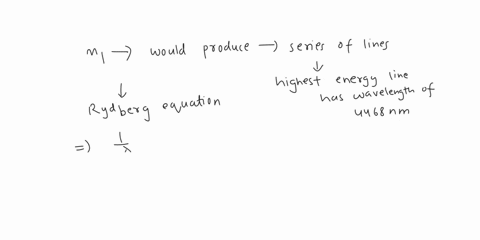 n1 → would produce → series of lines
↓ ↓
highest energy line
has wavelength of
4468 nm
Rydberg equation
=) 1/λ